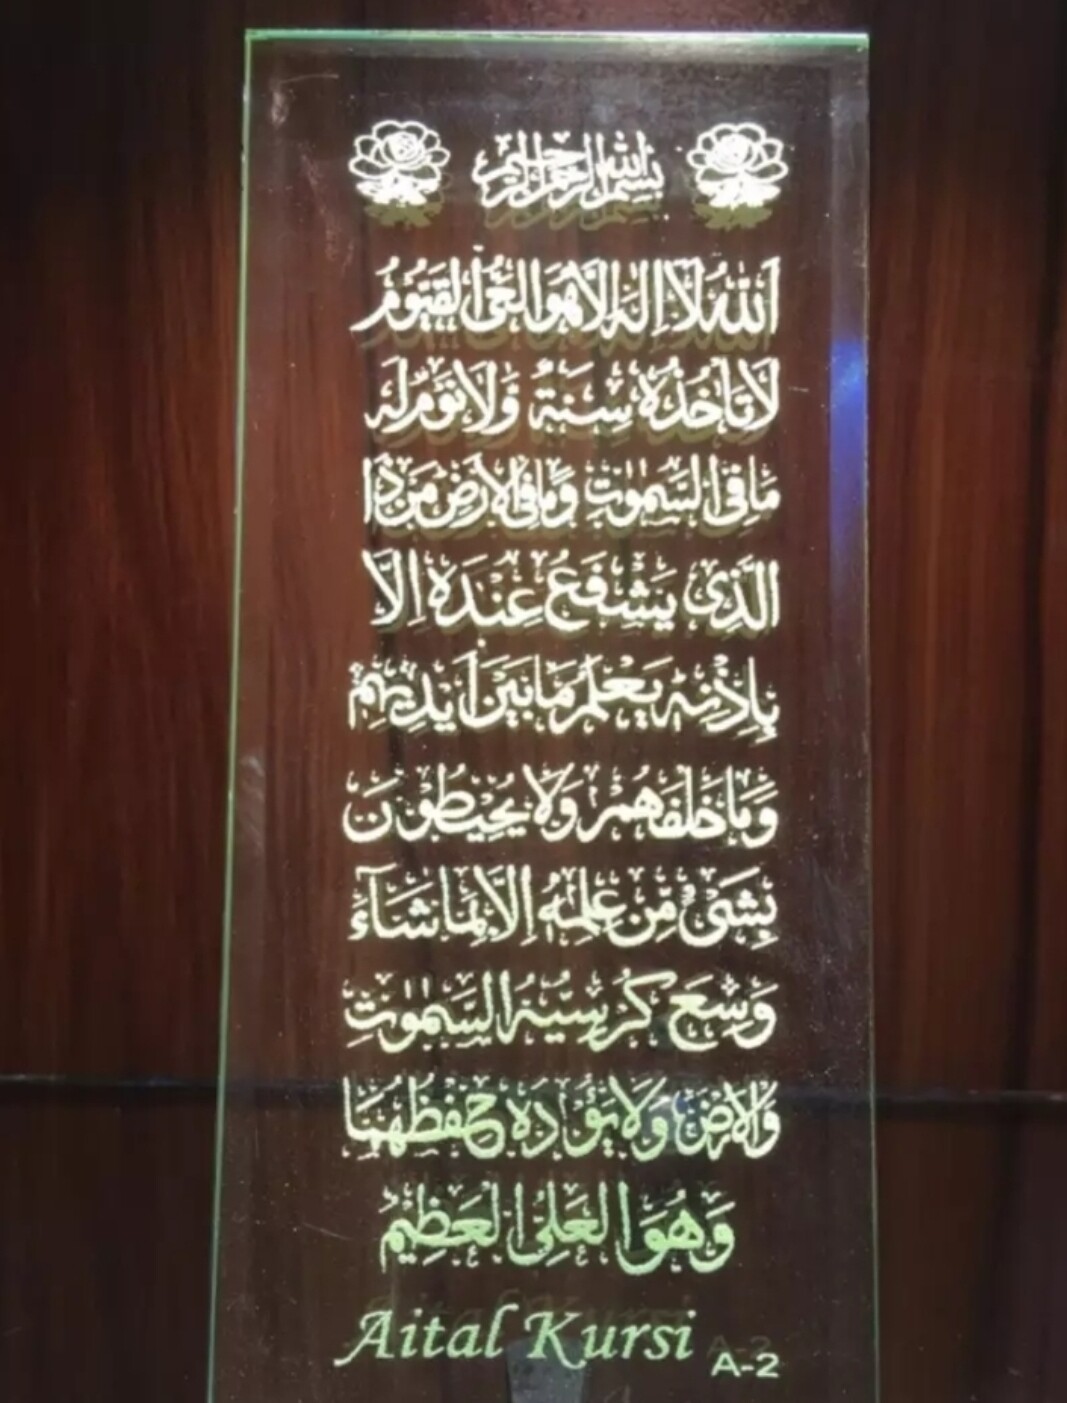 بسم الله الرحمن الرحيم
اَللّٰهُ لَآ اِلٰهَ اِلَّا هُوَ الْحَیُّ الْقَیُّوْمُ
لَا تَاْخُذُهٗ سِنَةٌ وَّلَا نَوْمٌ لَهٗ
مَا فِی السَّمٰوٰتِ وَمَا فِی الْاَرْضِ مَنْ ذَا
الَّذِی یَشْفَعُ عِنْدَهٗ اِلَّا
بِاِذْنِهٖ یَعْلَمُ مَا بَیْنَ اَیْدِیْهِمْ
وَمَا خَلْفَهُمْ وَلَا یُحِیْطُوْنَ
بِشَیْءٍ مِّنْ عِلْمِهٖٓ اِلَّا بِمَا شَآءَ
وَسِعَ كُرْسِیُّهُ السَّمٰوٰتِ
وَالْاَرْضَ وَلَا یَئُوْدُهٗ حِفْظُهُمَا
وَهُوَ الْعَلِیُّ الْعَظِیْمُ
Aital Kursi A-2